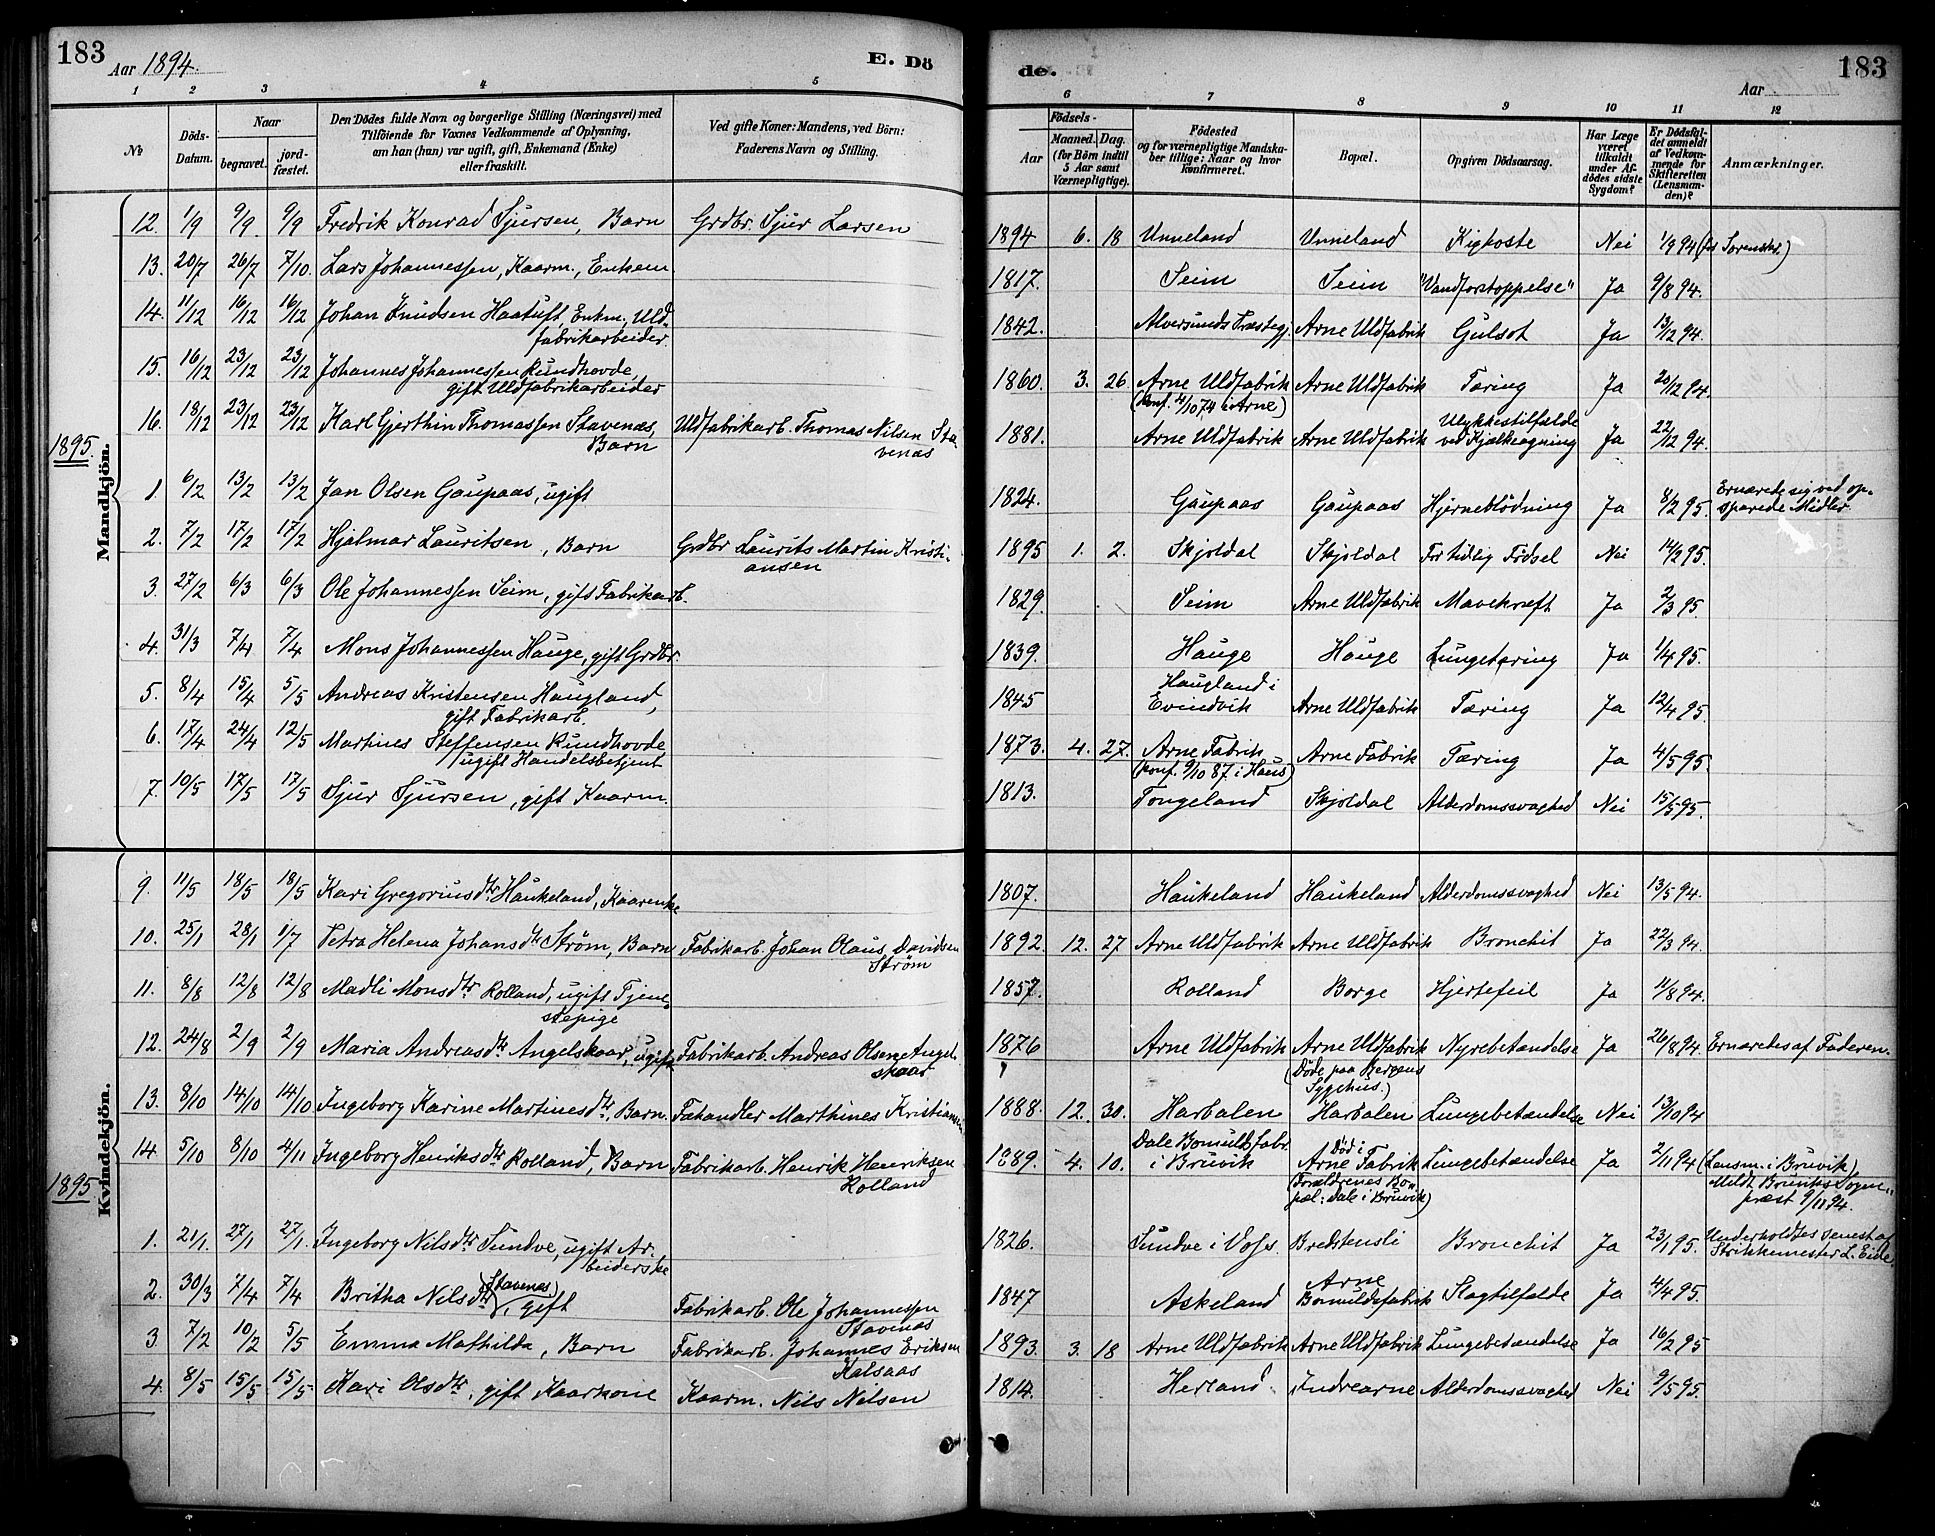 183 Aar 1894. E. Dö
de. Aar 183
1 2 3 4 5
6 7 8 9 10 11 12
No Döds-Datum. Naar begravet. jord-fæstet. Den Dödes fulde Navn og borgerlige Stilling (Næringsvei) med Tilföiende for Voxnes Vedkommende af Oplysning, om han (hun) var ugift, gift, Enkemand (Enke) eller fraskilt. Ved gifte Koner: Mandens, ved Börn: Faderens Navn og Stilling.
Födsels- Aar Maaned. Dag. (for Börn indtil 5 Aar samt Værnepligtige). Födested og for værnepligtige Mandskaber tillige: Naar og hvor konfirmeret. Bopæl. Opgiven Dödsaarsag. Har Læge været tilkaldt under Afdödes sidste Sygdom? Er Dödsfaldet anmeldt af Vedkommende for Skifteretten (Lensmanden)? Anmærkninger.
Mandkjön.
12. 1/9 9/9. 9/9 Fredrik Konrad Sjursen, Barn Grdbr. Sjur Larsen 1894 6. 18 Unneland Unneland Kighoste Nei 1/9 94 (fos Sorenskr.)
13. 20/7 26/7 7/10. Lars Johannessen, Kaarm., Enkem. 1817. Seim Seim "Vandforstoppelse" Ja 9/8 94.
14. 11/12 16/12 16/12 Johan Knudsen Haatuft Enkm., Uld-
fabrikarbeider 1842. Alversunds Præstegj. Arne Uldfabrik Gulsot Ja 13/12 94.
15. 16/12 23/12 23/12 Johannes Johannessen Rundhovde,
gift Uldfabrikarbeider 1860. 3. 26. Arne Uldfabrik (konf. 4/10 74 i Arne) Arne Uldfabrik Tæring Ja 20/12 94.
16. 18/12 23/12 23/12 Karl Gjerthin Thomassen Stavenæs,
Barn Uldfabrikarb. Thomas Nilsen Sta-
venæs 1881. Arne Uldfabrik Arne Uldfabrik Ulykkestilfælde ved Kjælkeagning Ja 22/12 94.
1895.
1. 6/2 13/2 13/2 Jan Olsen Gaupaas, ugift 1824. Gaupaas Gaupaas Hjerneblödning Ja 8/2 95. Ernærede sig ved op-
sparede Midler
2. 7/2 17/2 17/2 Hjalmar Lauritsen, Barn Grdbr Laurits Martin Kristi-
ansen 1895 1. 2. Skjoldal Skjoldal For tidlig Födsel Nei 14/2 95.
3. 27/2 6/3 6/3 Ole Johannessen Seim, gift Fabrikarb. 1829. Seim Arne Uldfabrik Mavekræft Ja 2/3 95
4. 31/3 7/4 7/4 Mons Johannessen Hauge, gift Grdbr. 1839. Hauge Hauge Lungetæring Ja 1/4 95.
5. 8/4 15/4 5/5 Andreas Kristensen Haugland,
gift Fabrikarb. 1845 Haugland i Evindvik Arne Uldfabrik Tæring Ja 12/4 95.
6. 17/4 24/4 12/5 Martines Steffensen Rundhovde
ugift Handelsbetjent 1873. 4. 27. Arne Fabrik (konf. 9/10 87. i Haus) Arne Fabrik Tæring Ja 4/5 95.
7. 10/5 17/5 17/5 Sjur Sjursen, gift Kaarm. 1813. Tongeland Skjoldal Alderdomssvaghed Nei 15/5 95.
Kvindekjön.
9. 11/5 18/5 18/5 Kari Gregoriusdtr Haukeland, Kaarenke 1807. Haukeland Haukeland Alderdomssvaghed Nei 13/5 94.
10. 25/1 28/1 1/7 Petra Helena Johansdtr Ström, Barn Fabrikarb. Johan Olaus Davidsen
Ström 1892. 12. 27 Arne Uldfabrik Arne Uldfabrik Bronchit Ja 22/3 94.
11. 8/8 12/8 12/8 Madli Monsdtr Rolland, ugift Tjene-
stepige 1857. Rolland Borge Hjertefeil Ja 11/8 94.
12. 24/8 2/9 2/9 Maria Andreasdtr Angelskaar, ugift Fabrikarb. Andreas Olsen Angel-
skaar 1876 Arne Uldfabrik Arne Uldfabrik (Döde paa Bergens Sygehus.) Nyrebetændelse Ja 26/8 94. Ernæredes af Faderen.
13. 8/10 14/10 14/10 Ingeborg Karine Martinesdtr, Barn. Fæhandler Marthines Kristiansen 1888. 12. 30. Harbalen Harbalen Lungebetændelse Nei 13/10 94
14. 5/10 8/10 4/11 Ingeborg Henriksdtr Rolland, Barn Fabrikarb. Henrik Henriksen
Rolland 1889. 4. 10. Dale Bomuldsfabr. i Bruvik Död i Arne Fabrik (Forældrenes Bopæl: Dale i Bruvik) Lungebetændelse Ja 2/11 94 (Lensm. i Bruvik)
Meldt Bruviks Sogne-
præst 9/11 94.
1895
1. 21/1. 27/1 27/1. Ingeborg Nilsdtr Sundve, ugift Ar-
beiderske 1826. Sundve i Voss. Bredstensli Bronchit Ja 23/1 95. Underholdtes senest af
Strikkemester L. Eide.
2. 30/3 7/4 7/4 Britha Nilsdtr (Stavenes), gift Fabrikarb. Ole Johannessen
Stavenæs 1847 Askeland Arne Bomuldsfabrik Slagtilfælde Ja 4/4 95.
3. 7/2 10/2 5/5 Emma Mathilda, Barn Fabrikarb. Johannes Eriksen
Kalsaas 1893. 3. 18 Arne Uldfabrik Arne Uldfabrik Lungebetændelse Ja 16/2 95
4. 8/5 15/5. 15/5 Kari Olsdtr, gift Kaarkone Kaarm. Nils Nilsen 1814. Herland Indrearne Alderdomssvaghed Nei 9/5 95.